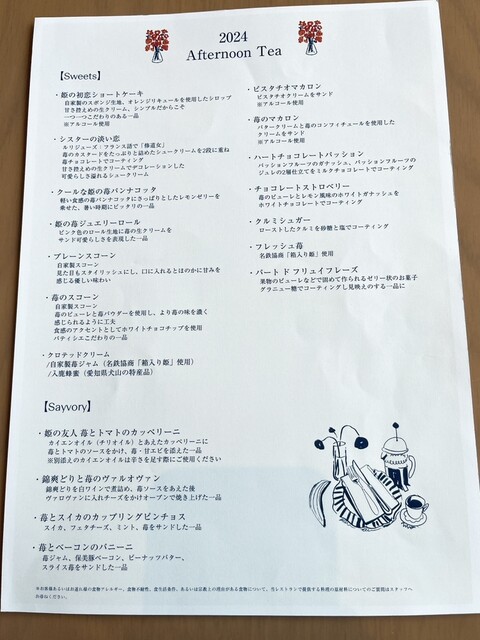 2024
Afternoon Tea
【Sweets】
・姫の初恋ショートケーキ
自家製のスポンジ生地、オレンジリキュールを使用したシロップ
甘さ控えめの生クリーム、シンプルだからこそ
一つ一つこだわりのある一品
※アルコール使用
・シスターの淡い恋
ルリジューズ：フランス語で「修道女」
苺のカスタードをたっぷりと詰めたシュークリームを2段に重ね
苺チョコレートでコーティング
甘さ控えめの生クリームでデコレーションした
可愛らしさ溢れるシュークリーム
・クールな姫の苺パンナコッタ
軽い食感の苺パンナコッタにさっぱりとしたレモンゼリーを
乗せた、暑い時期にピッタリの一品
・姫の苺ジュエリーロール
ピンク色のロール生地に苺の生クリームを
サンド可愛らしさを表現した一品
・プレーンスコーン
自家製スコーン
見た目もスタイリッシュにし、口に入れるとほのかに甘みを
感じる優しい味わい
・苺のスコーン
自家製スコーン
苺のピューレと苺パウダーを使用し、より苺の味を濃く
感じられるように工夫
食感のアクセントとしてホワイトチョコチップを使用
パティシエこだわりの一品
・クロテッドクリーム
/自家製苺ジャム（名鉄協商「箱入り姫」使用）
/入鹿蜂蜜（愛知県犬山の特産品）
・ピスタチオマカロン
ピスタチオクリームをサンド
※アルコール使用
・苺のマカロン
バタークリームと苺のコンフィチュールを使用した
クリームをサンド
※アルコール使用
・ハートチョコレートパッション
パッションフルーツのガナッシュ、パッションフルーツの
ジュレの2層仕立てをミルクチョコレートでコーティング
・チョコレートストロベリー
苺のピューレとレモン風味のホワイトガナッシュを
ホワイトチョコレートでコーティング
・クルミシュガー
ローストしたクルミを砂糖と塩でコーティング
・フレッシュ苺
名鉄協商「箱入り姫」使用
・パート ド フリュイフレーズ
果物のピューレなどで固めて作られるゼリー状のお菓子
グラニュー糖でコーティングし見映えのする一品に
【Sayvory】
・姫の友人 苺とトマトのカッペリーニ
カイエンオイル（チリオイル）とあえたカッペリーニに
苺とトマトのソースをかけ、苺・甘エビを添えた一品
※別添えのカイエンオイルは辛さを足す際にご使用ください
・錦爽どりと苺のヴァルオヴァン
錦爽どりを白ワインで煮詰め、苺ソースをあえた後
ヴァロヴァンに入れチーズをかけオーブンで焼き上げた一品
・苺とスイカのカップリングピンチョス
スイカ、フェタチーズ、ミント、苺をサンドした一品
・苺とベーコンのパニーニ
苺ジャム、保美豚ベーコン、ピーナッツバター、
スライス苺をサンドした一品
※お客様あるいはお連れ様の食物アレルギー、食物不耐性、食生活条件、あるいは宗教上の理由がある食物について、当レストランで提供する料理の原材料についてのご質問はスタッフへ
お尋ねください。